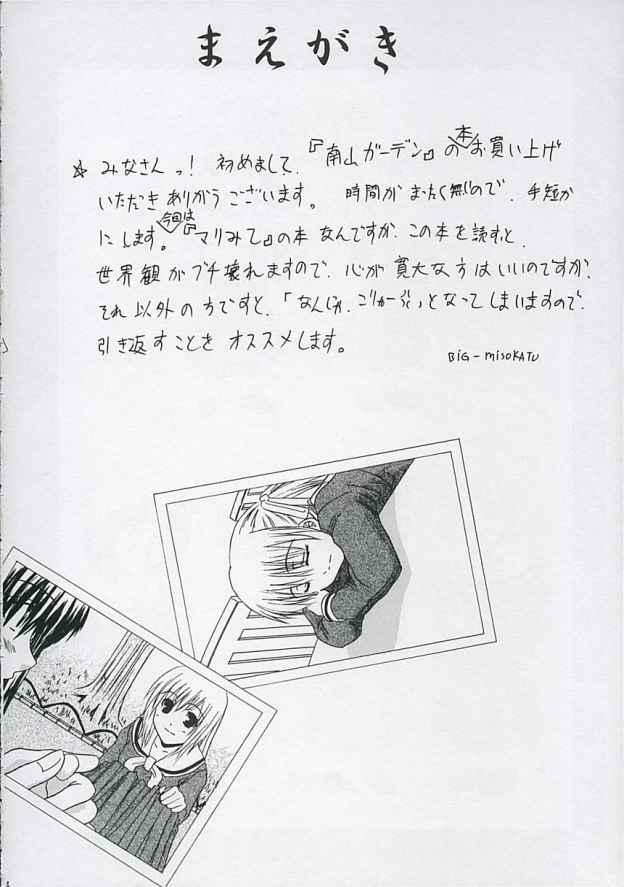 まえがき
☆ みなさんっ! 初めまして、『南山ガーデン』の本お買い上げ
いただきありがうございます。 時間がまったく無いので、手短か
にします。今回は『マリみて』の本なんですが、この本を読すと、
世界観がブチ壊れますので、心が寛大な方はいいのですが、
それ以外の方ですと、「なんじゃ、こりゃーぁ!」となってしまいますので、
引き返すことをオススメします。
BiG-misoKATU